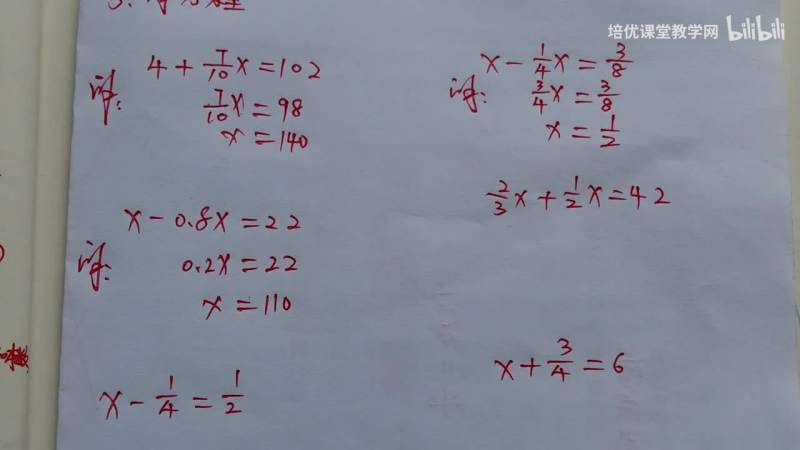 培优课堂教学网 bilibili
3. 解方程
4 + 7/10 x = 102
解: 7/10 x = 98
x = 140
x - 1/4 x = 3/8
解: 3/4 x = 3/8
x = 1/2
x - 0.8x = 22
解: 0.2x = 22
x = 110
2/3 x + 1/2 x = 42
x - 1/4 = 1/2
x + 3/4 = 6